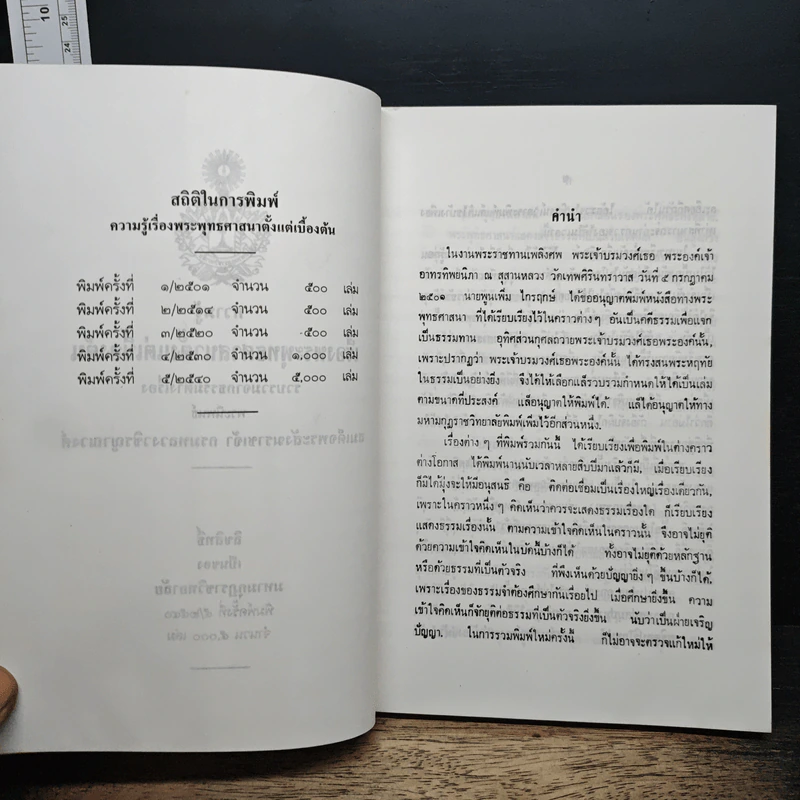 10
25
24
สถิติในการพิมพ์
ความรู้เรื่องพระพุทธศาสนาตั้งแต่เบื้องต้น
พิมพ์ครั้งที่ ๑/๒๕๐๑ จำนวน ๕๐๐ เล่ม
พิมพ์ครั้งที่ ๒/๒๕๑๔ จำนวน ๕๐๐ เล่ม
พิมพ์ครั้งที่ ๓/๒๕๒๐ จำนวน ๕๐๐ เล่ม
พิมพ์ครั้งที่ ๔/๒๕๓๐ จำนวน ๑,๐๐๐ เล่ม
พิมพ์ครั้งที่ ๕/๒๕๔๐ จำนวน ๕,๐๐๐ เล่ม
คำนำ
ในงานพระราชทานเพลิงศพ พระเจ้าบรมวงศ์เธอ พระองค์เจ้า
อาทรทิพยนิภา ณ สุสานหลวง วัดเทพศิรินทราวาส วันที่ ๕ กรกฎาคม
๒๕๐๑ นายพูนเพิ่ม ไกรฤกษ์ ได้ขออนุญาตพิมพ์หนังสือทางพระ
พุทธศาสนา ที่ได้เรียบเรียงไว้ในคราวต่างๆ อันเป็นคติธรรมเพื่อแจก
เป็นธรรมทาน อุทิศส่วนกุศลถวายพระเจ้าบรมวงศ์เธอพระองค์นั้น,
เพราะปรากฏว่า พระเจ้าบรมวงศ์เธอพระองค์นั้น ได้ทรงสนพระหฤทัย
ในธรรมเป็นอย่างยิ่ง จึงได้ให้เลือกแล้รวบรวมกำหนดให้ได้เป็นเล่ม
ตามขนาดที่ประสงค์ แล้อนุญาตให้พิมพ์ได้. แล้ได้อนุญาตให้ทาง
มหามกุฏราชวิทยาลัยพิมพ์เพิ่มไว้อีกส่วนหนึ่ง.
เรื่องต่าง ๆ ที่พิมพ์รวมกันนี้ ได้เรียบเรียงเพื่อพิมพ์ในต่างคราว
ต่างโอกาส ได้พิมพ์นานนับเวลาหลายสิบปีมาแล้วก็มี, เมื่อเรียบเรียง
ก็มิได้มุ่งจะให้มีอนุสนธิ คือ คิดต่อเชื่อมเป็นเรื่องใหญ่เรื่องเดียวกัน,
เพราะในคราวหนึ่งๆ คิดเห็นว่าควรจะแสดงธรรมเรื่องใด ก็เรียบเรียง
แสดงธรรมเรื่องนั้น ตามความเข้าใจคิดเห็นในคราวนั้น จึงอาจไม่ยุติ
ด้วยความเข้าใจคิดเห็นในบัดนี้บ้างก็ได้ ทั้งอาจไม่ยุติด้วยหลักฐาน
หรือด้วยธรรมที่เป็นตัวจริง ที่พึงเห็นด้วยปัญญายิ่งๆ ขึ้นบ้างก็ได้.
เพราะเรื่องของธรรมจำต้องศึกษากันเรื่อยไป เมื่อศึกษายิ่งขึ้น ความ
เข้าใจคิดเห็นก็จักยุติต่อธรรมที่เป็นตัวจริงยิ่งขึ้น นับว่าเป็นฝ่ายเจริญ
ปัญญา. ในการรวมพิมพ์ใหม่ครั้งนี้ ก็ไม่อาจจะตรวจแก้ใหม่ให้